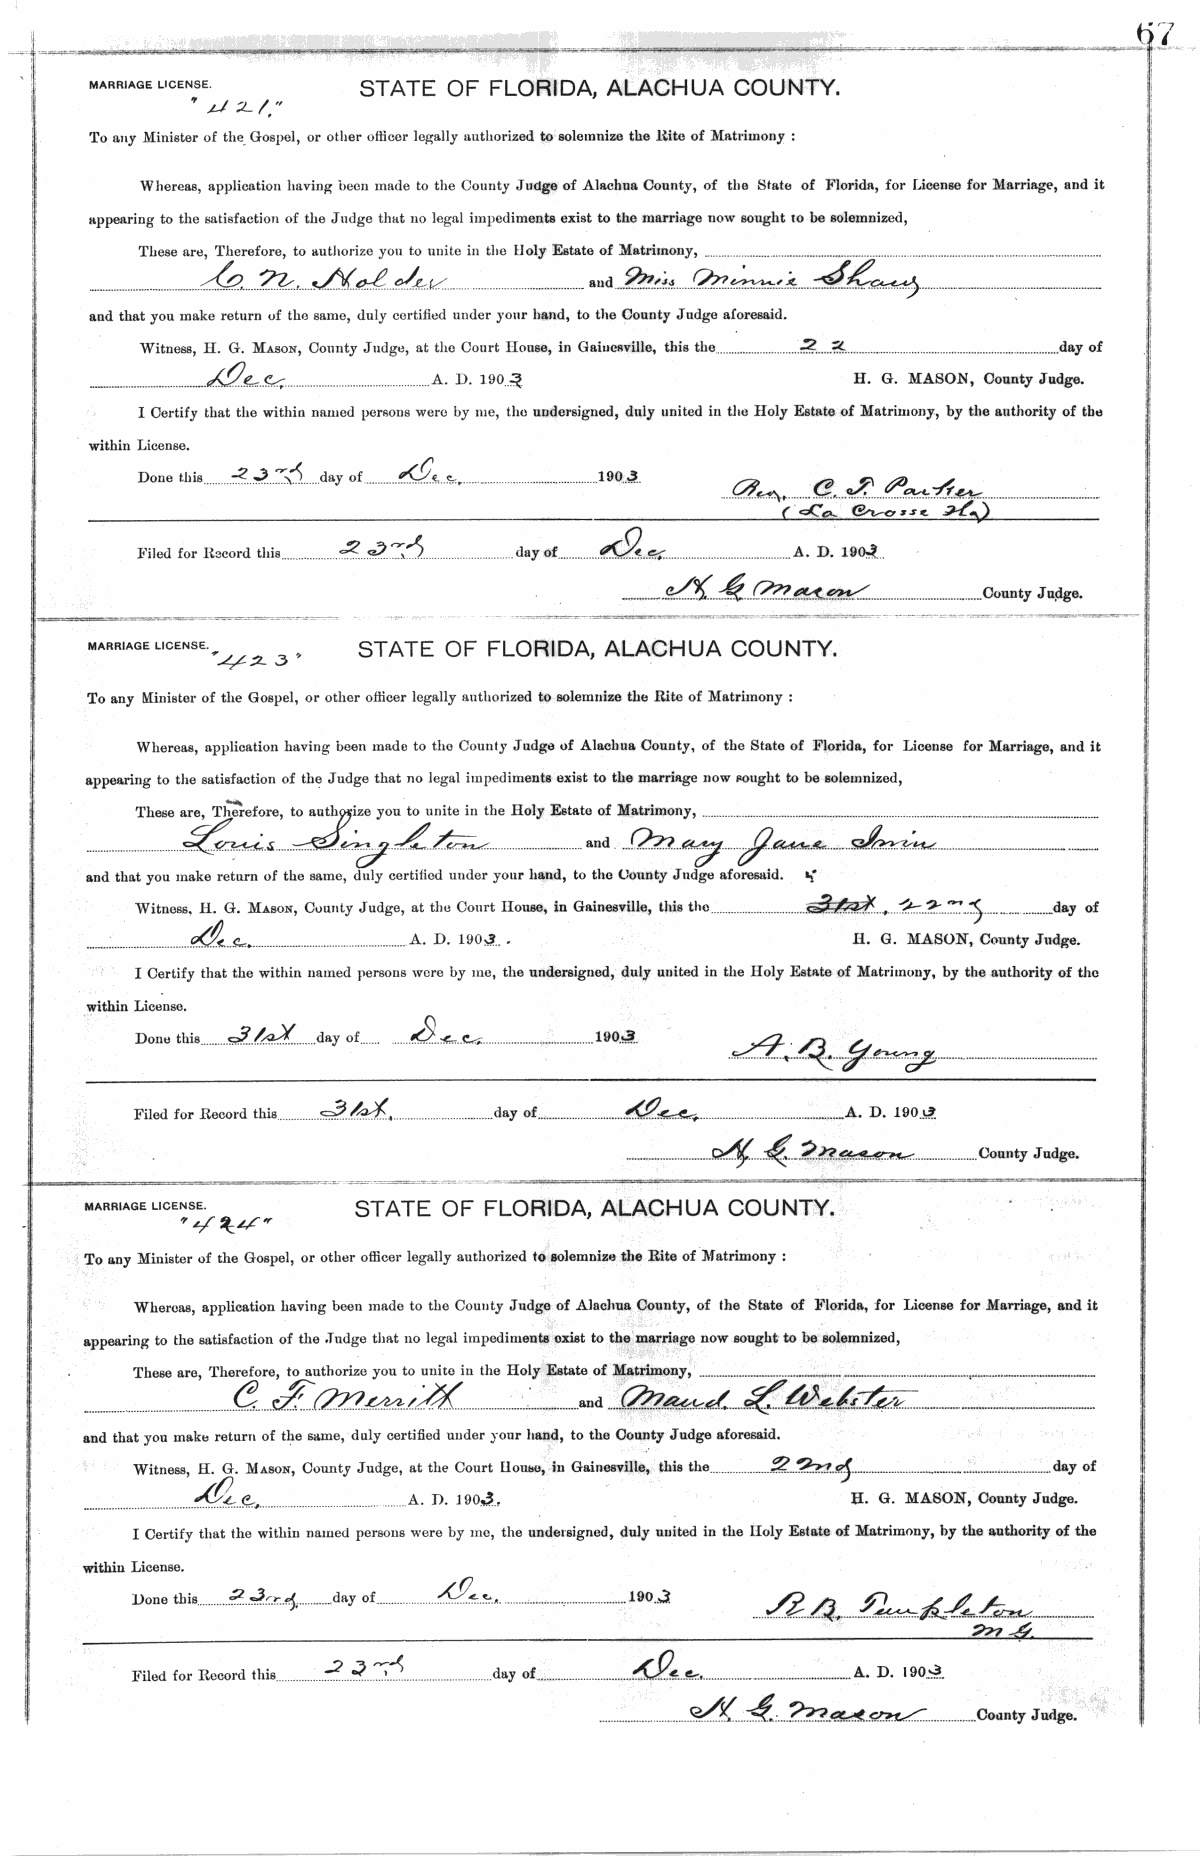 67
MARRIAGE LICENSE. STATE OF FLORIDA, ALACHUA COUNTY.
"421."
To any Minister of the Gospel, or other officer legally authorized to solemnize the Rite of Matrimony :
Whereas, application having been made to the County Judge of Alachua County, of the State of Florida, for License for Marriage, and it
appearing to the satisfaction of the Judge that no legal impediments exist to the marriage now sought to be solemnized,
These are, Therefore, to authorize you to unite in the Holy Estate of Matrimony,
C. N. Holder and Miss Minnie Shaw
and that you make return of the same, duly certified under your hand, to the County Judge aforesaid.
Witness, H. G. MASON, County Judge, at the Court House, in Gainesville, this the 22 day of
Dec. A. D. 1903 H. G. MASON, County Judge.
I Certify that the within named persons were by me, the undersigned, duly united in the Holy Estate of Matrimony, by the authority of the
within License.
Done this 23rd day of Dec. 1903
Rev. C. T. Parker
(La Crosse Fla)
Filed for Record this 23rd day of Dec. A. D. 1903
H. G. Mason County Judge.
MARRIAGE LICENSE. STATE OF FLORIDA, ALACHUA COUNTY.
"423"
To any Minister of the Gospel, or other officer legally authorized to solemnize the Rite of Matrimony :
Whereas, application having been made to the County Judge of Alachua County, of the State of Florida, for License for Marriage, and it
appearing to the satisfaction of the Judge that no legal impediments exist to the marriage now sought to be solemnized,
These are, Therefore, to authorize you to unite in the Holy Estate of Matrimony,
Louis Singleton and Mary Jane Irvin
and that you make return of the same, duly certified under your hand, to the County Judge aforesaid.
Witness, H. G. MASON, County Judge, at the Court House, in Gainesville, this the 31st, 22nd day of
Dec. A. D. 1903. H. G. MASON, County Judge.
I Certify that the within named persons were by me, the undersigned, duly united in the Holy Estate of Matrimony, by the authority of the
within License.
Done this 31st day of Dec. 1903
A. B. Young
Filed for Record this 31st, day of Dec. A. D. 1903
H. G. Mason County Judge.
MARRIAGE LICENSE. STATE OF FLORIDA, ALACHUA COUNTY.
"424"
To any Minister of the Gospel, or other officer legally authorized to solemnize the Rite of Matrimony :
Whereas, application having been made to the County Judge of Alachua County, of the State of Florida, for License for Marriage, and it
appearing to the satisfaction of the Judge that no legal impediments exist to the marriage now sought to be solemnized,
These are, Therefore, to authorize you to unite in the Holy Estate of Matrimony,
C. F. Merrith and Maud. L. Webster
and that you make return of the same, duly certified under your hand, to the County Judge aforesaid.
Witness, H. G. MASON, County Judge, at the Court House, in Gainesville, this the 22nd day of
Dec. A. D. 1903. H. G. MASON, County Judge.
I Certify that the within named persons were by me, the undersigned, duly united in the Holy Estate of Matrimony, by the authority of the
within License.
Done this 23rd day of Dec. 1903
R. B. Templeton
M G.
Filed for Record this 23rd day of Dec. A. D. 1903
H. G. Mason County Judge.